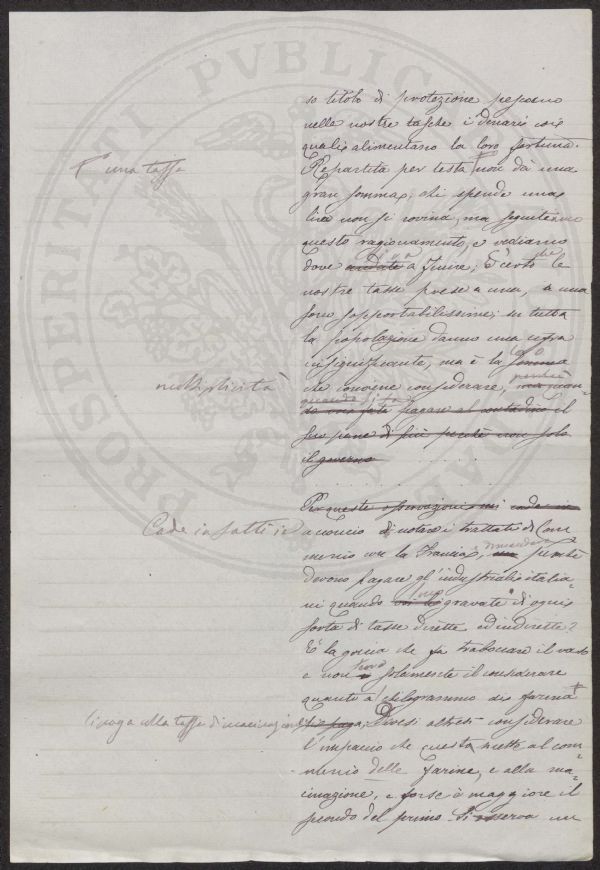 so titolo di protezione pescano
nelle nostre tasche i denari coi
quali alimentano la loro fortuna.
Repartita per testa non dà una
una tassa
gran somma, chi spende una
lira non si rovina, ma seguitiamo
questo ragionamento, e vediamo
dove andate a finire; È certo che le
nostre tasse prese a una, a una
sono sopportabilissime; su tutta
la popolazione danno una cifra
insignificante, ma è la somma
molteplicità
che conviene considerare, perchè
quando si fa
pagare al contadino il
suo pane di più perchè non solo
il governo
Per queste osservazioni mi cade in
Cade infatti in
acconcio di notare i trattati di Com-
mercio con la Francia, perchè
devono pagare gl'industriali italia-
ni quando sono gravati d'ogni
sorta di tasse dirette ed indirette?
È la goccia che fa traboccare il vaso
e non solamente il considerare
quanto a chilogrammo di farina
si paga alla tassa di macinazione
si paga, Devesi altresì considerare
l'impaccio che questa mette al com-
mercio delle farine, e alla ma-
cinazione, e forse è maggiore il
secondo del primo. Si osserva un
PROSPERITATI PVBLICAE